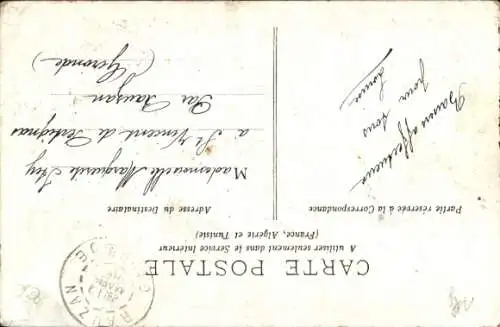 CARTE POSTALE
A utiliser seulement dans le Service Intérieur
(France, Algérie et Tunisie)
Partie réservée à la Correspondance
Adresse du Destinataire
pour vous
Louise
Mademoiselle Marguerite
à St Vincent de Pertignas
Par Rauzan
(Gironde)
RAUZAN